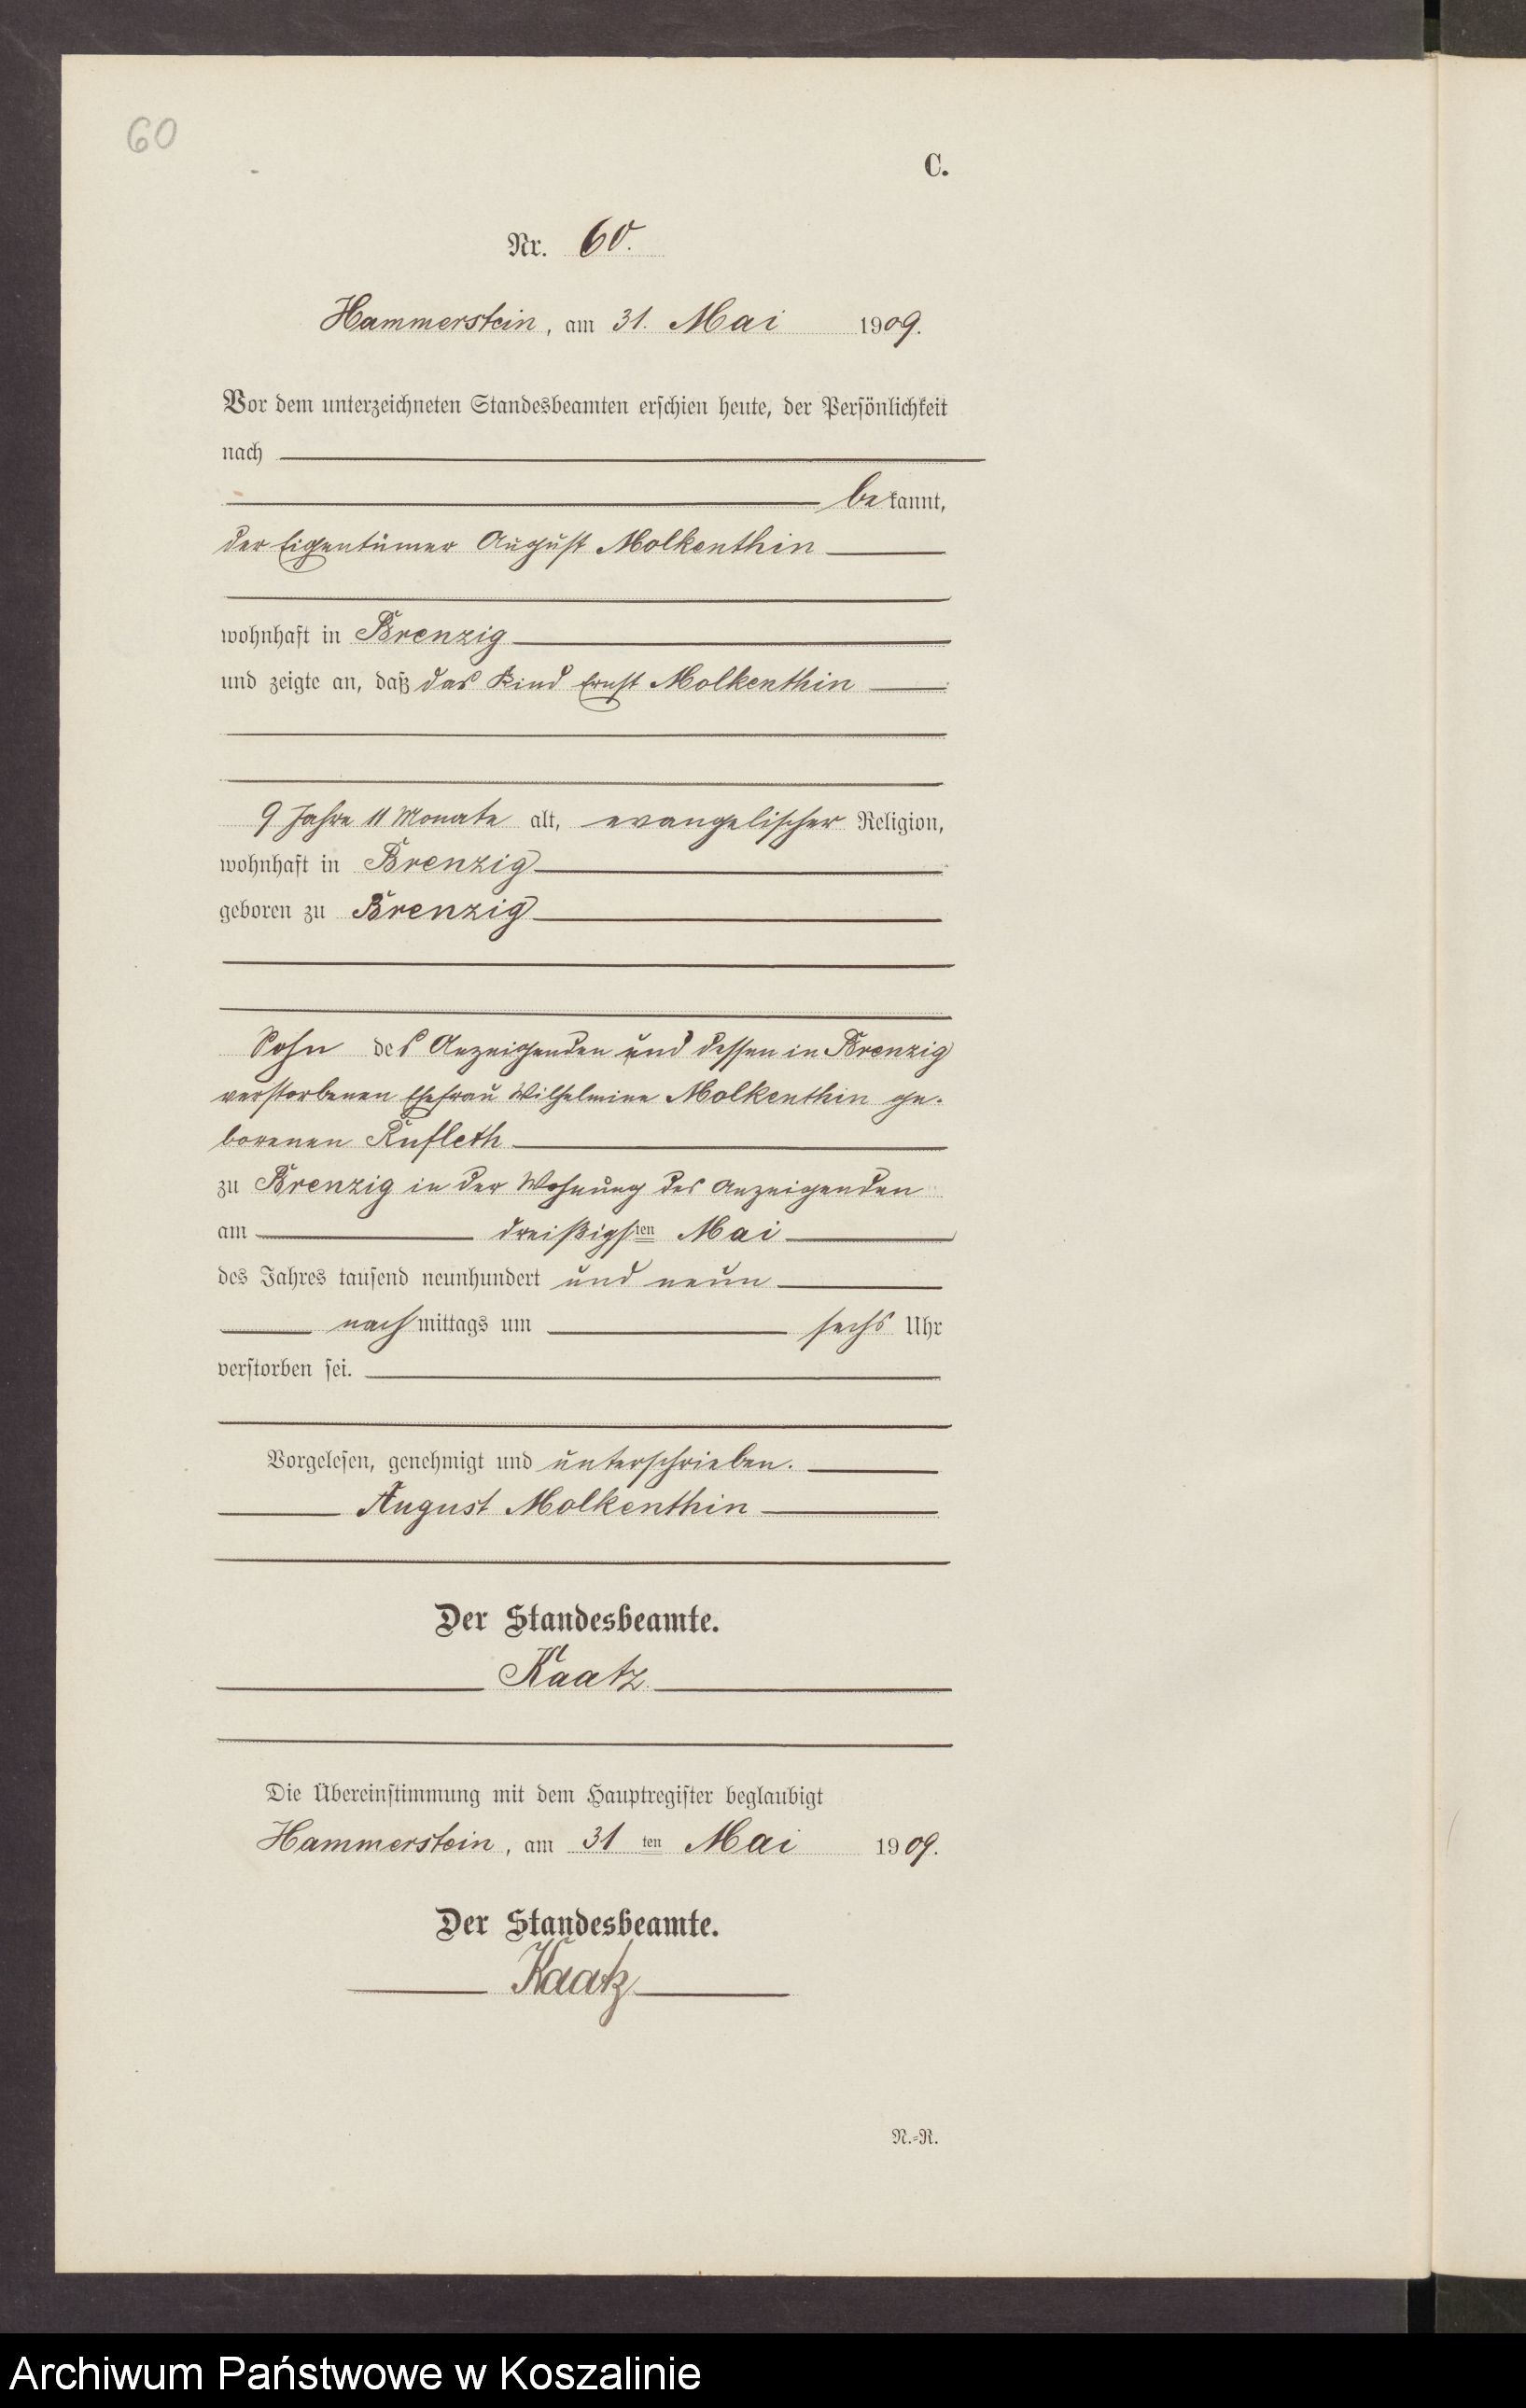 60
C.
Nr. 60.
Hammerstein, am 31. Mai 1909.
Vor dem unterzeichneten Standesbeamten erschien heute, der Persönlichkeit
nach
bekannt,
der Eigentümer August Molkenthin
wohnhaft in Brenzig
und zeigte an, daß das Kind Ernst Molkenthin
9 Jahre 11 Monate alt, evangelischer Religion,
wohnhaft in Brenzig
geboren zu Brenzig
Sohn des Anzeigenden und dessen in Brenzig
verstorbenen Ehefrau Wilhelmine Molkenthin ge-
borenen Rufleth
zu Brenzig in der Wohnung des Anzeigenden
am dreißigsten Mai
des Jahres tausend neunhundert und neun
nachmittags um sechs Uhr
verstorben sei.
Vorgelesen, genehmigt und unterschrieben.
August Molkenthin
Der Standesbeamte.
Kaatz
Die Übereinstimmung mit dem Hauptregister beglaubigt
Hammerstein, am 31ten Mai 1909.
Der Standesbeamte.
Kaatz
N.-R.
Archiwum Państwowe w Koszalinie